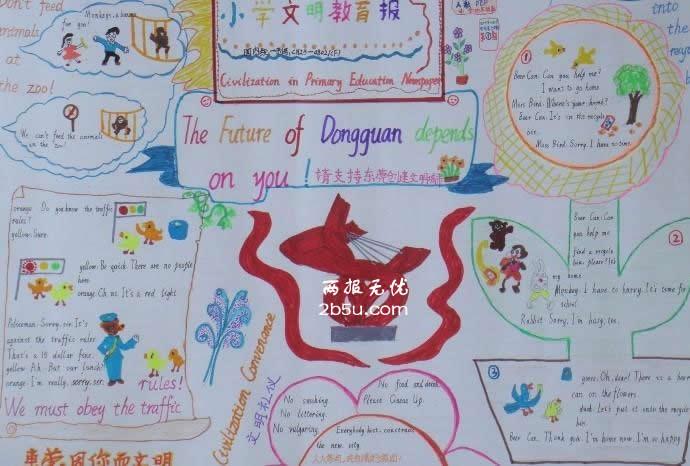 Don't feed
animals
at
the zoo!
Monkeys, a banana
for you!
We can't feed the animals
in the zoo!
小学文明教育报
Civilization in Primary Education Newspaper
The Future of Dongguan depends
on you!
请支持东莞创建文明城市
into
the
Beer Can: Can you help me?
I want to go home
Miss Bird: Where's your home?
Beer Can: It's in the recycle
bin.
Miss Bird: Sorry, I have no time.
orange: Do you know the traffic
rules?
yellow: Sure.
yellow: Be quick. There are no people
here.
orange: Oh, no. It's a red light
Policeman: Sorry, sir. It's
against the traffic rules
That's a 10 dollar fine.
yellow: Ah. But our lunch!
orange: I'm really, sorry, sir.
We must obey the traffic
rules!
东莞因你而文明
两报无优
2b5u.com
Civilization Convenance
文明礼仪
No smoking.
No littering.
No vulgaring.
No food and drink.
Please Queue Up.
Everybody host, construct
the new city.
②
Beer Can: Can
you help me
find a recycle
bin, please? It's
my home
Monkey: I have to hurry. It's time for
school
Rabbit: Sorry, I'm busy, too.
③
goose: Oh, dear! There is a beer
can on the flowers.
duck: Let's put it into the recycle
bin.
Beer Can: Thank you. I'm home now. I'm so happy